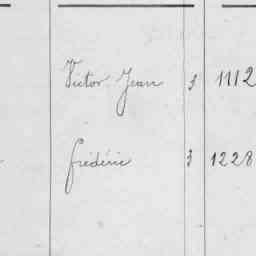 Victor Jean 3 1112
frédéric 3 1228